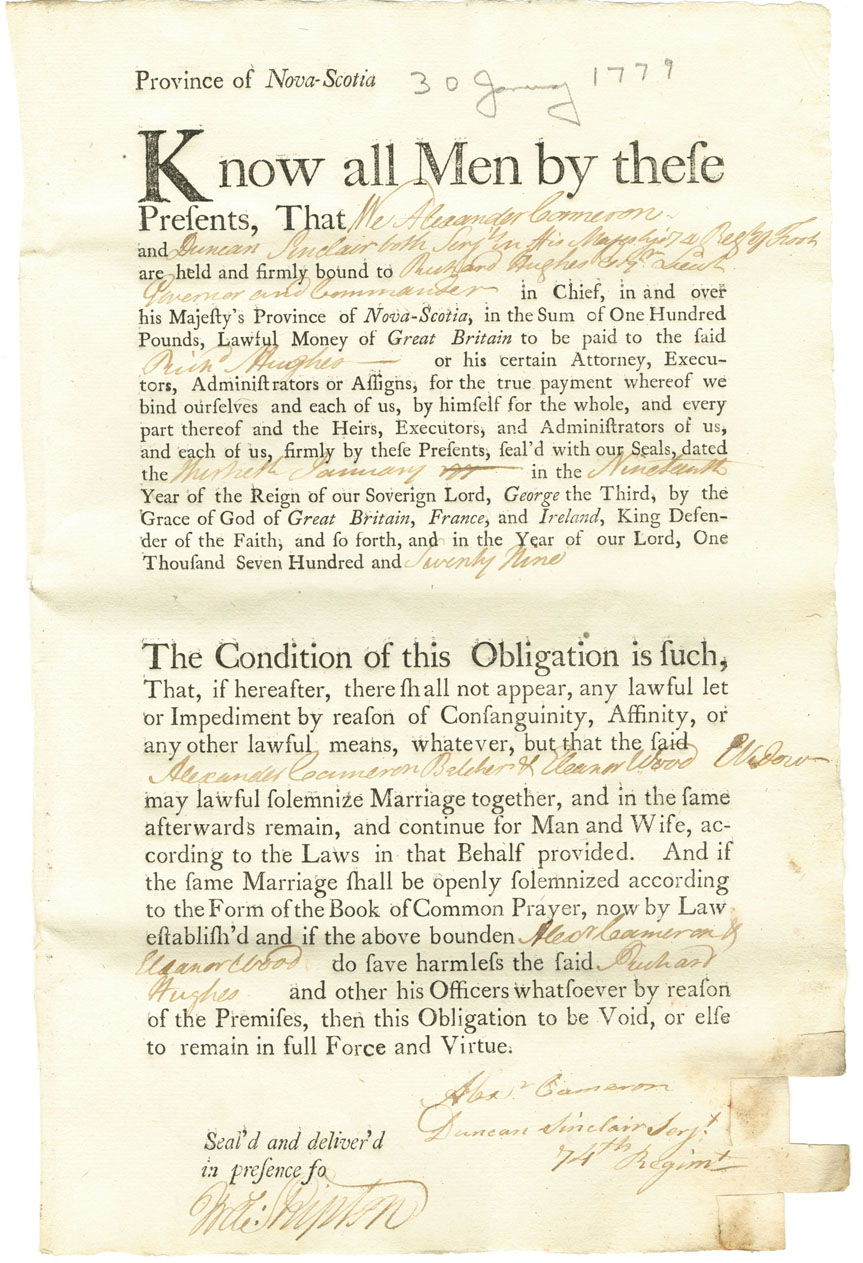 Province of Nova-Scotia 30 January 1779
Know all Men by theſe
Preſents, That We Alexander Cameron
and Duncan Sinclair both Serjts in His Majesty's 74 Regt of Foot
are held and firmly bound to Richard Hughes Esqr Lieut
Governor and Commander in Chief, in and over
his Majeſty's Province of Nova-Scotia, in the Sum of One Hundred
Pounds, Lawful Money of Great Britain to be paid to the ſaid
Richd Hughes — or his certain Attorney, Execu-
tors, Adminiſtrators or Aſſigns, for the true payment whereof we
bind ourſelves and each of us, by himſelf for the whole, and every
part thereof and the Heirs, Executors, and Adminiſtrators of us,
and each of us, firmly by theſe Preſents, ſeal'd with our Seals, dated
the thirtieth January in the Nineteenth
Year of the Reign of our Soverign Lord, George the Third, by the
Grace of God of Great Britain, France, and Ireland, King Defen-
der of the Faith, and ſo forth, and in the Year of our Lord, One
Thouſand Seven Hundred and Seventy Nine
The Condition of this Obligation is ſuch,
That, if hereafter, there ſhall not appear, any lawful let
or Impediment by reaſon of Conſanguinity, Affinity, or
any other lawful means, whatever, but that the ſaid
Alexander Cameron Batcher & Eleanor Wood Widow
may lawful ſolemnize Marriage together, and in the ſame
afterwards remain, and continue for Man and Wife, ac-
cording to the Laws in that Behalf provided. And if
the ſame Marriage ſhall be openly ſolemnized according
to the Form of the Book of Common Prayer, now by Law
eſtabliſh'd and if the above bounden Alexr Cameron &
Eleanor Wood do ſave harmleſs the ſaid Richard
Hughes and other his Officers whatſoever by reaſon
of the Premiſes, then this Obligation to be Void, or elſe
to remain in full Force and Virtue.
Alexr Cameron
Duncan Sinclair Serjt
74th Regimt
Seal'd and deliver'd
in preſence fo